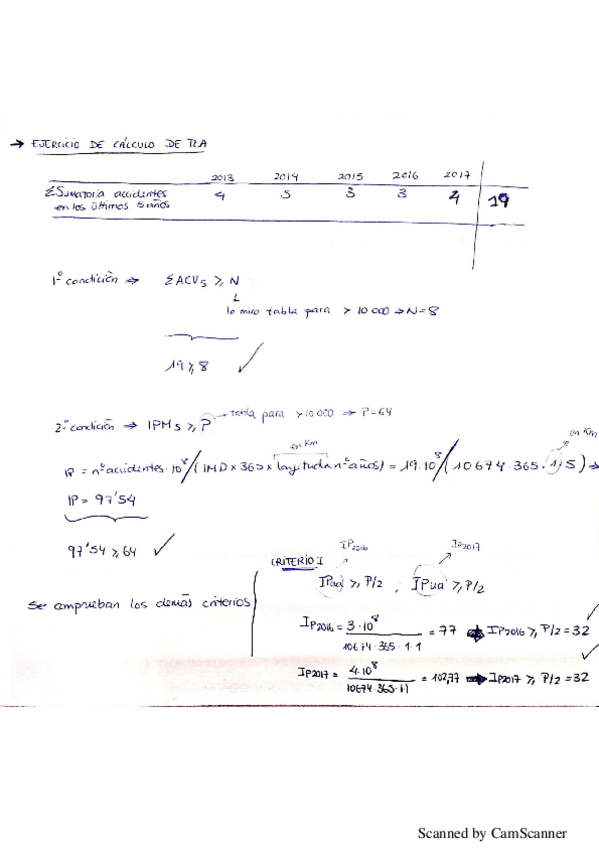 → EJERCICIO DE CÁLCULO DE TCA
2013 2014 2015 2016 2017
ΣSumatoria accidentes 4 5 3 3 4 19
en los últimos 5 años
1º condición ⇒ ΣACV5 ≥ N
lo miro tabla para > 10 000 ⇒ N=8
19 ≥ 8 ✓
2º condición ⇒ IPM5 ≥ P → tabla para >10 000 ⇒ P=64
en Km en Km
IP = nº accidentes · 10⁸/(IMD × 365 × longitud × nº años) = 19·10⁸/(10674·365·1,5) ⇒
IP = 97'54
97'54 ≥ 64 ✓
CRITERIO I IP2016 IP2017
IPua ≥ P/2 ; IPua ≥ P/2
Se comprueban los demás criterios
IP2016 = 3·10⁸ / 10674·365·1·1 = 77 ➡ IP2016 ≥ P/2 = 32 ✓
IP2017 = 4·10⁸ / 10674·365·1·1 = 102,77 ➡ IP2017 ≥ P/2 = 32 ✓
Scanned by CamScanner